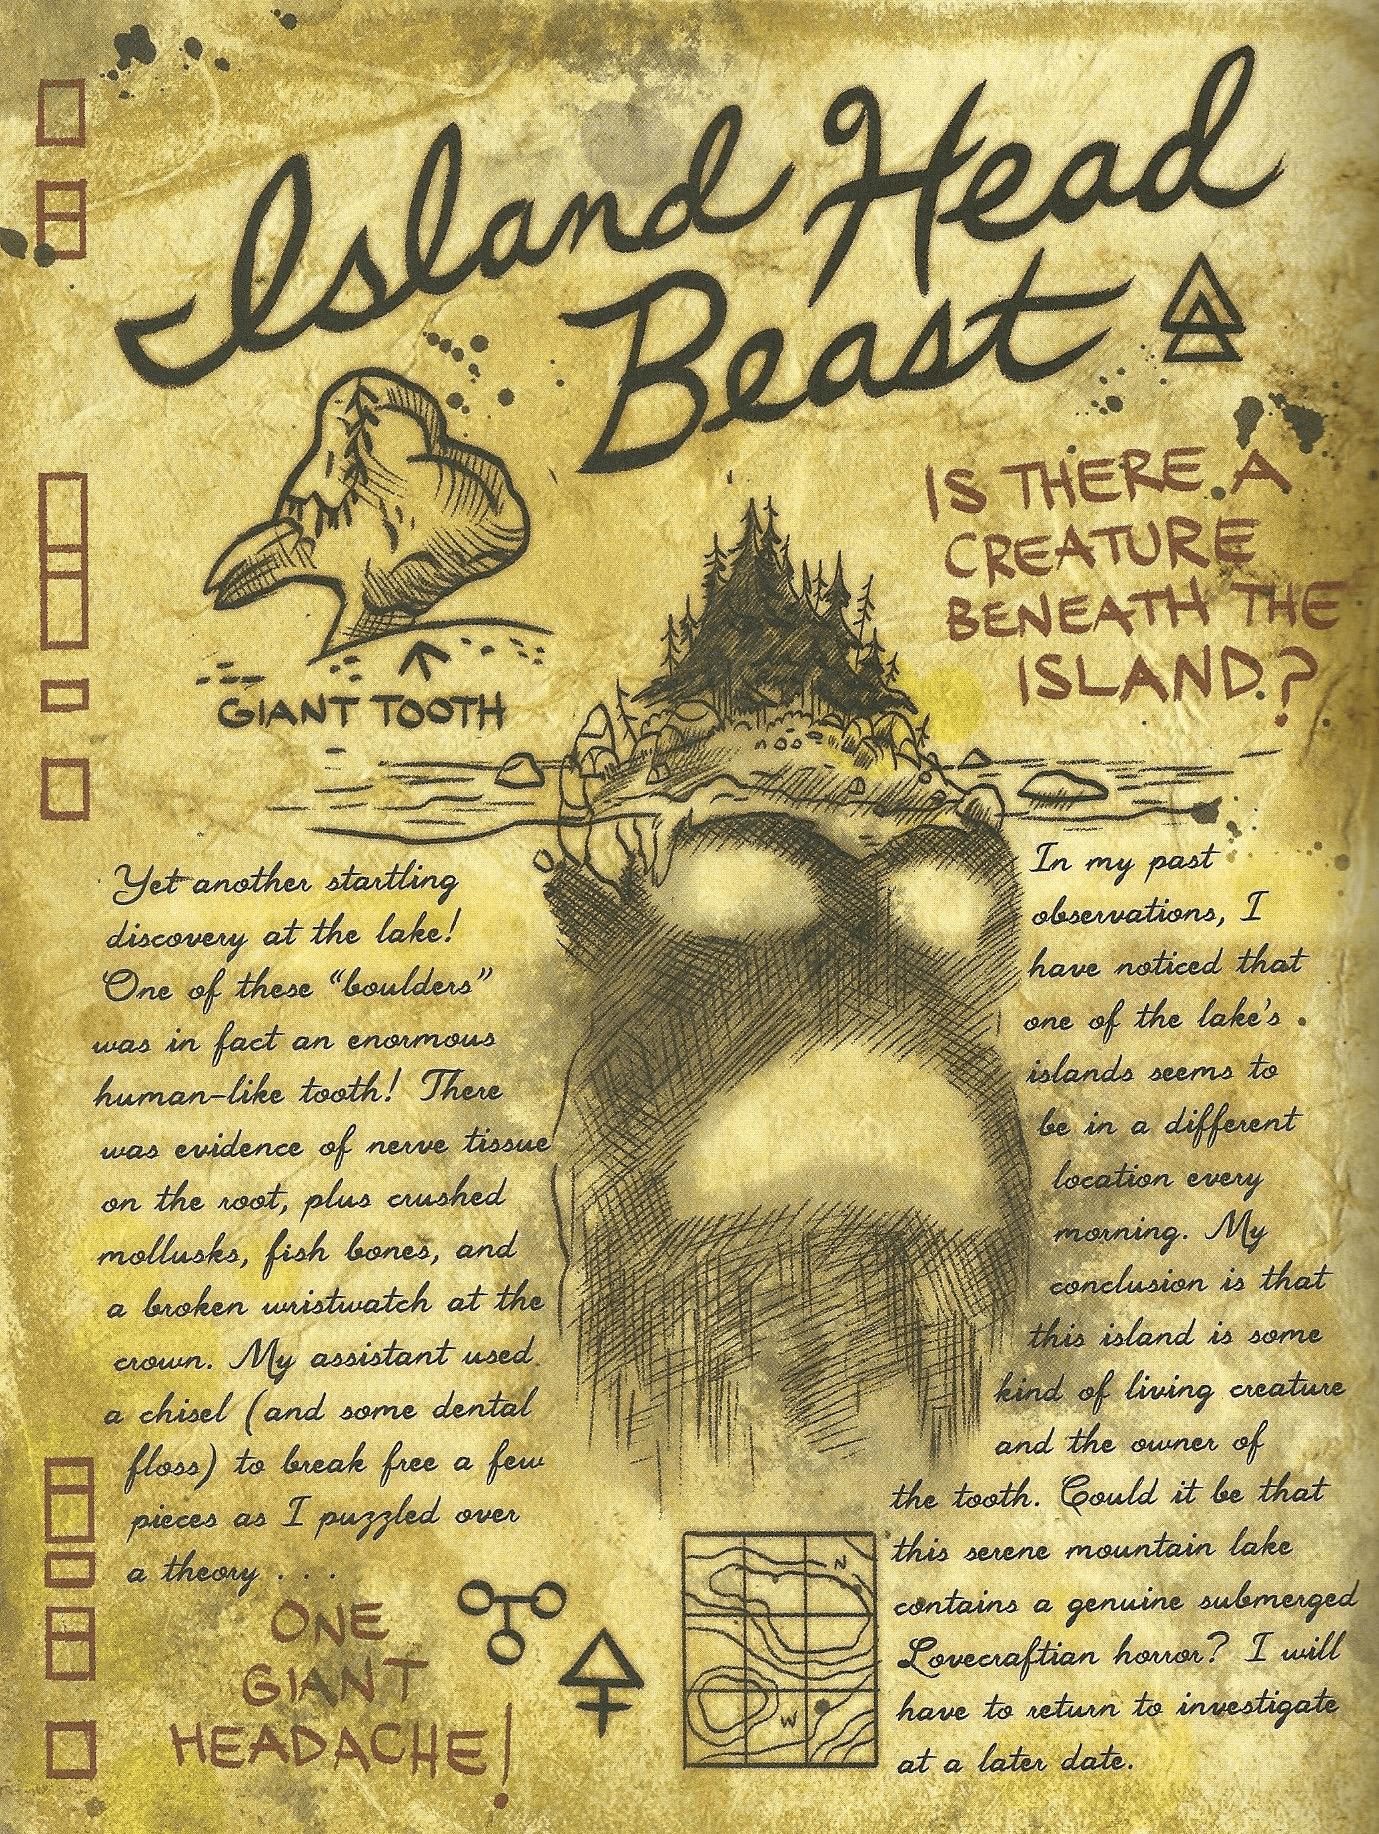 Island Head
Beast
IS THERE A
CREATURE
BENEATH THE
ISLAND?
GIANT TOOTH
Yet another startling
discovery at the lake!
One of these “boulders”
was in fact an enormous
human-like tooth! There
was evidence of nerve tissue
on the root, plus crushed
mollusks, fish bones, and
a broken wristwatch at the
crown. My assistant used
a chisel (and some dental
floss) to break free a few
pieces as I puzzled over
a theory . . .
ONE
GIANT
HEADACHE!
In my past
observations, I
have noticed that
one of the lake’s
islands seems to
be in a different
location every
morning. My
conclusion is that
this island is some
kind of living creature
and the owner of
the tooth. Could it be that
this serene mountain lake
contains a genuine submerged
Lovecraftian horror? I will
have to return to investigate
at a later date.
N
W